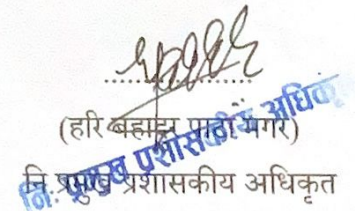 (हरि बहादुर पाठा मगर)
नि.प्रमुख प्रशासकीय अधिकृत
नि. प्रमुख प्रशासकीय अधिकृत